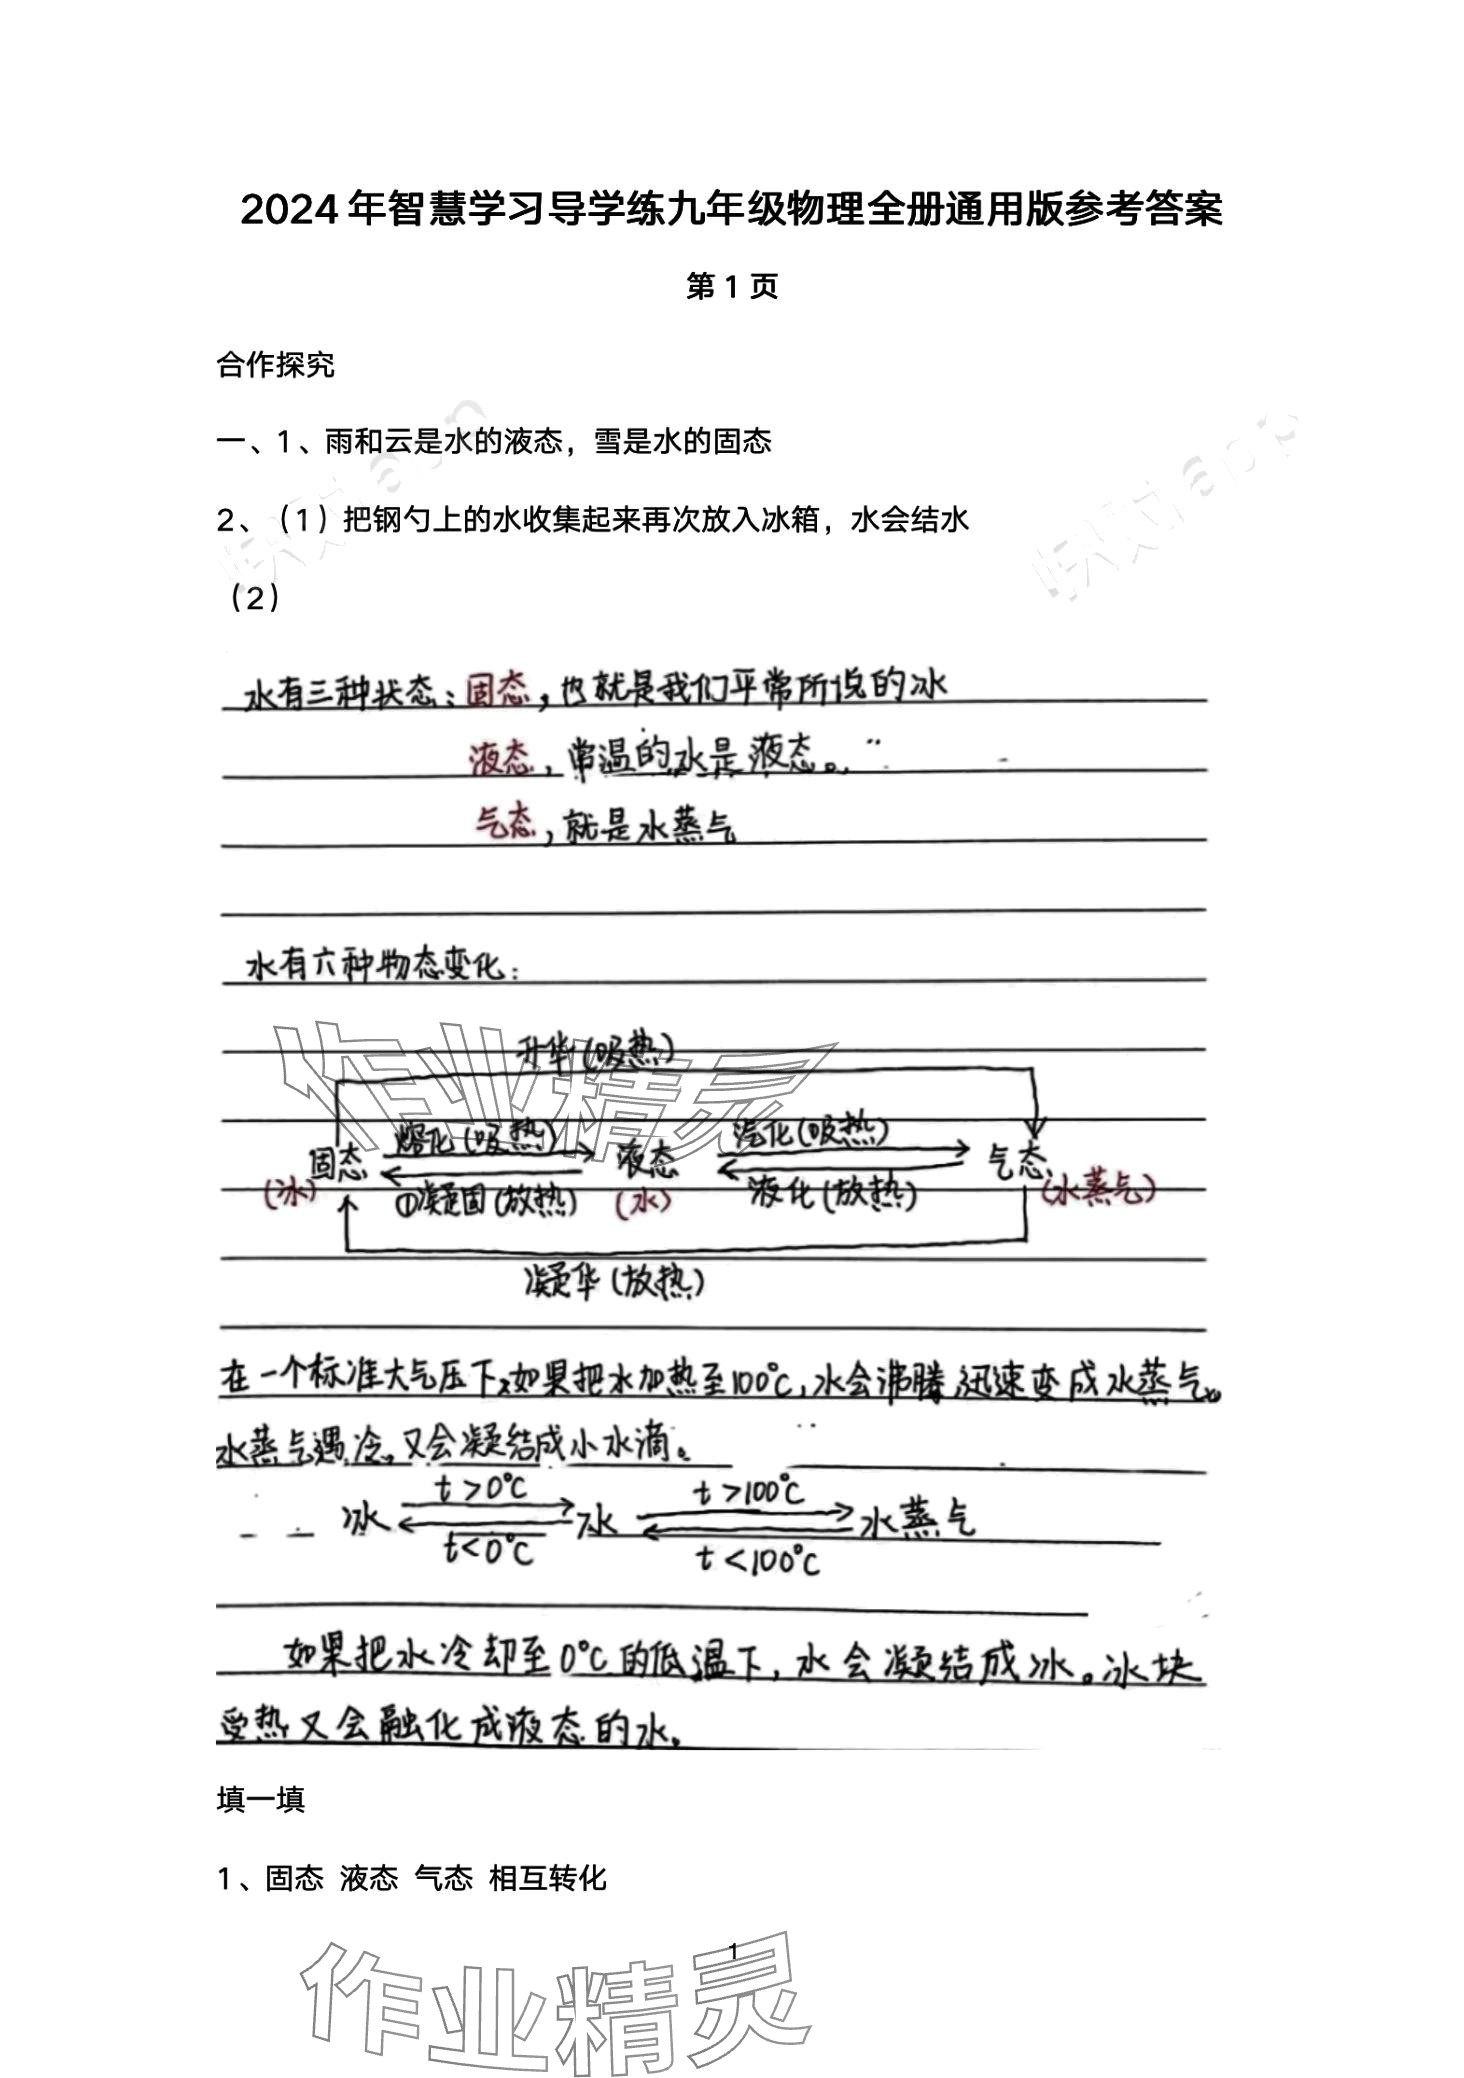 2024年智慧学习导学练九年级物理全册通用版参考答案
第1页
合作探究
一、1、雨和云是水的液态，雪是水的固态
2、（1）把钢勺上的水收集起来再次放入冰箱，水会结水
（2）
水有三种状态：固态，也就是我们平常所说的冰
液态，常温的水是液态。
气态，就是水蒸气
水有六种物态变化：
升华(吸热)
熔化(吸热) 汽化(吸热)
固态 液态 气态
(冰) ①凝固(放热) (水) 液化(放热) (水蒸气)
凝华(放热)
在一个标准大气压下，如果把水加热至100℃，水会沸腾，迅速变成水蒸气。
水蒸气遇冷，又会凝结成小水滴。
t>0℃ t>100℃
冰 水 水蒸气
t<0℃ t<100℃
如果把水冷却至0℃的低温下，水会凝结成冰。冰块
受热又会融化成液态的水。
填一填
1、固态 液态 气态 相互转化
1
作业精灵
作业精灵
快对app
快对app